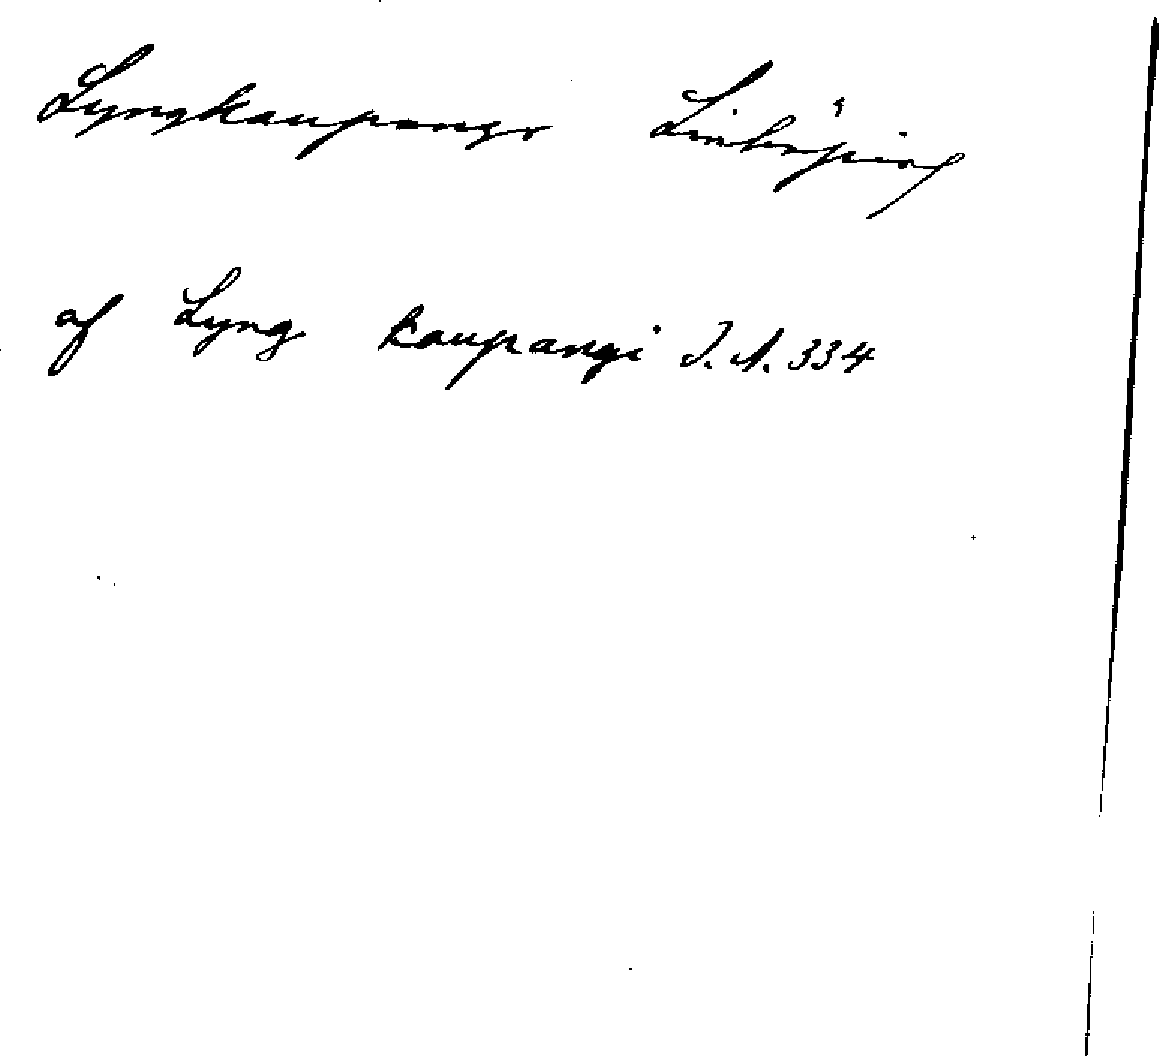 Lyngkaupangr Linköping
af Lyng kaupangi J. A. 334